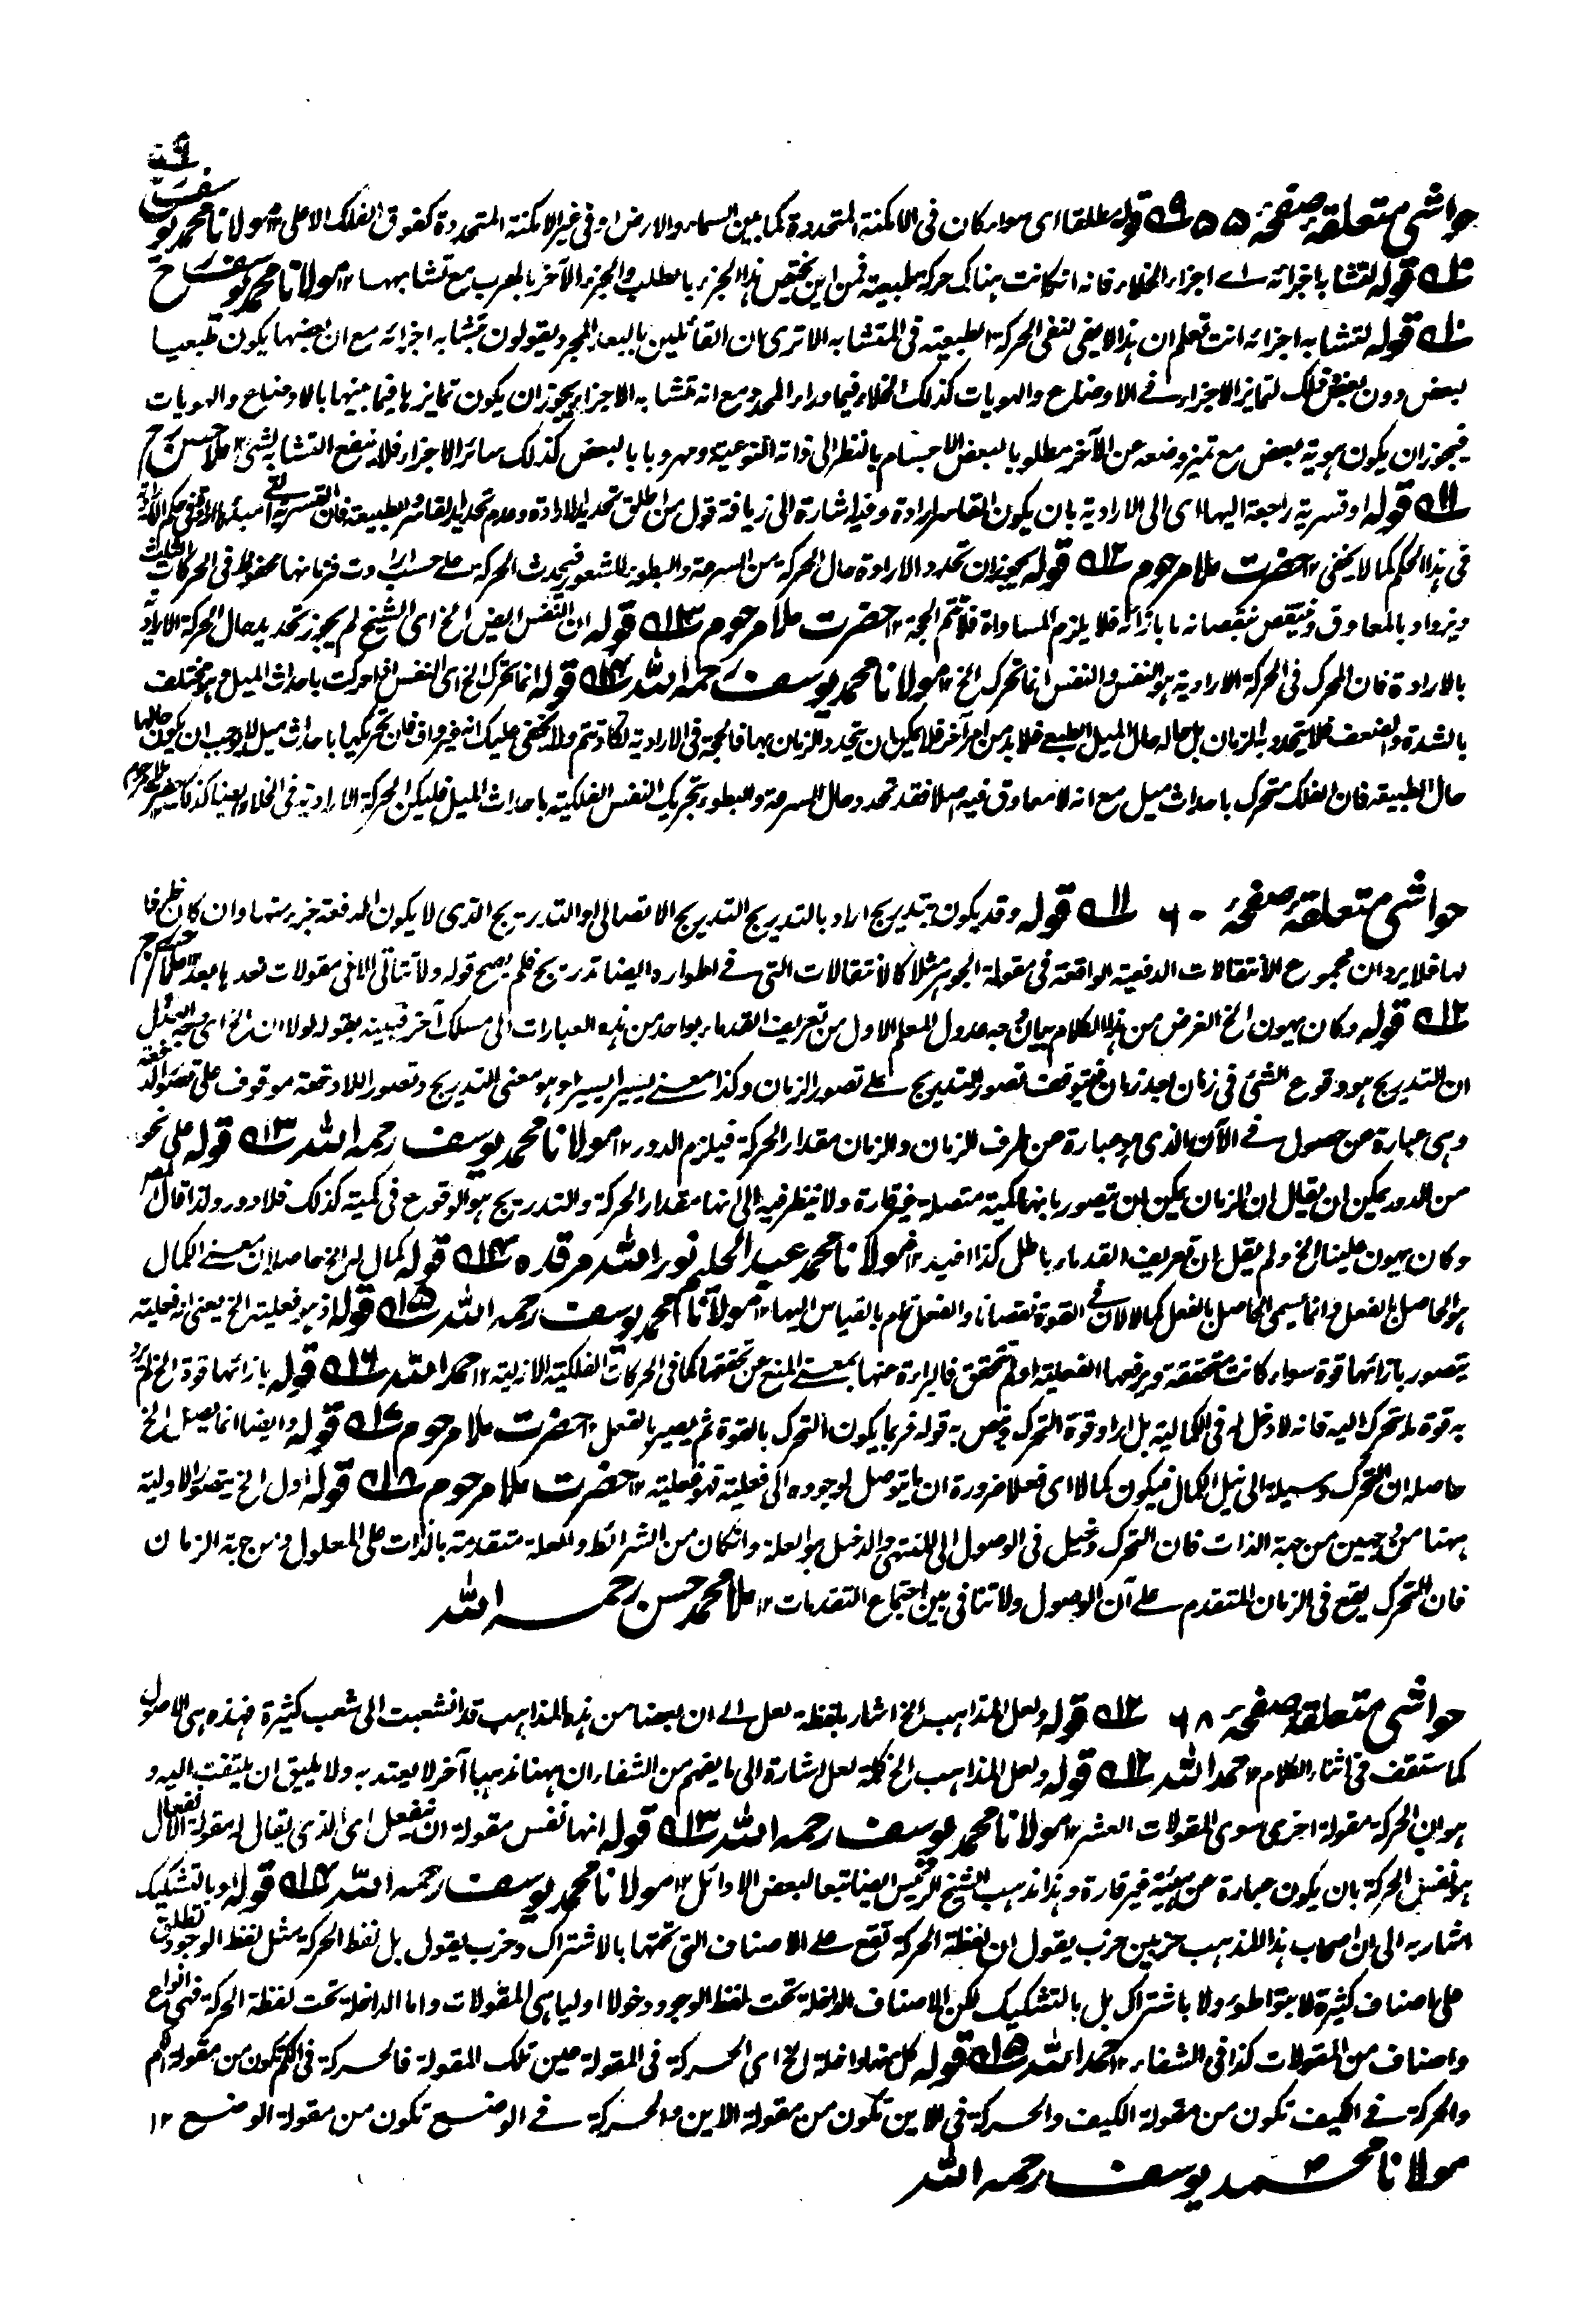 حواشی متعلقہ صفحہ ۵۵ ۹ قوله مطلقا ای سواء کان فی الامکنة المتحددة کما بین السماء والارض او فی غیر الامکنة المتحددة کفوق الفلک الاعلی ۱۲ مولانا محمد یوسف
۱۰ قوله لتشابه اجزائه ای اجزاء الخلاء فانه ان کانت هناک حرکة طبیعیة فمن این یختص هذا الجزء بالطلب والجزء الآخر بالهرب مع تشابههما ۱۲ مولانا محمد یوسف رح
۱۰ قوله لتشابه اجزائه انت تعلم ان هذا لا یفی لنفی الحرکة الطبیعیة فی المتشابه الا تری ان القائلین بالبعد المجرد یقولون بتشابه اجزائه مع ان بعضها یکون طبعیا
لبعض دون بعض فلک لتمایز الاجزاء فی الاوضاع والهویات کذلک الخلاء فیما وراء المحدد مع انه متشابه الاجزاء یجوز ان یکون تمایزها فیما بینها بالاوضاع والهویات
فیجوز ان یکون هویة لبعض مع تمیز وضعه عن الآخر مطلوبا لبعض الاجسام بالنظر الی ذاته النوعیة ومهروبا بالبعض کذلک سائر الاجزاء فلا ینفع التشابه لشئ ۱۲ ملا حسن رح
۱۱ قوله او قسریة راجعة الیها ای الی الارادیة بان یکون القاسر ارادة وفیه اشارة الی زیافة قول من اطلق تحدید الارادة وعدم تحدید القاسر والطبیعة فان القسریة التی مبدأها الارادة فی حکم الارادیة
فی هذا الحکم کما لا یخفی ۱۲ حضرت ملا مرحوم ۱۲ قوله یجوز ان تحدد الارادة حال الحرکة من السرعة والبطوء للشعور فیحدث الحرکة علی حسب ارادت فزمانها محفوظ فی الحرکات الثلث
ویزداد بالمعاوق وینتقص بنقصانه ما بازائه فلا یلزم المساواة فلا تتم الحجة ۱۲ حضرت ملا مرحوم ۱۳ قوله ان النفس ایضا الخ ای الشیخ لم یجوز تحدید حال الحرکة الارادیة
بالارادة فان المحرک فی الحرکة الارادیة هو النفس والنفس انما تحرک الخ ۱۲ مولانا محمد یوسف رحمه الله ۱۴ قوله انما تحرک الخ ای النفس انما حرکت باحداث المیل وهو مختلف
بالشدة والضعف فلا یتحدد به الزمان بل حاله حال المیل الطبعی فلابد من امر آخر فلا یمکن ان یتحدد الزمان بها فالحجة فی الارادیة کادت تتم ولا یخفی علیک انه غیر واف فان تحریکها باحداث میل لا یوجب ان یکون حالها
حال الطبیعة فان الفلک متحرک باحداث میل مع انه لا معاوق فیه اصلا فقد تحدد حال السرعة والبطوء بتحریک النفس الفلکیة باحداث المیل فلیکن الحرکة الارادیة فی الخلاء ایضا کذلک ۱۲ حضرت ملا مرحوم
حواشی متعلقہ صفحہ ۶۰ ۱۱ قوله وقد یکون بتدریج اراد بالتدریج التدریج الاتصالی او التدریج الذی لا یکون الدفعة جزء منها وان کان طرفا
لها فلا یرد ان مجموع الانتقالات الدفعیة الواقعة فی مقولة الجوهر مثلا کالانتقالات التی فی اطواره ایضا تدریج فلم یصح قوله ولا تتاتی الا فی مقولات تعد ها بعد ۱۲ ملا حسن رح
۱۲ قوله وکان یهون الخ الغرض من هذا الکلام بیان وجه عدول المعلم الاول من تعریف القدماء بواحد من هذه العبارات الی مسلک آخر فبینه بقوله لولا ان الخ ای وجه العدول
ان التدریج هو وقوع الشئ فی زمان بعد زمان فیتوقف تصور التدریج علی تصور الزمان وکذا معنی یسیرا یسیرا وهو معنی التدریج وتصور اللادفعة موقوف علی تصور الدفعة
وهی عبارة عن حصول فی الآن الذی هو عبارة عن طرف الزمان والزمان مقدار الحرکة فیلزم الدور ۱۲ مولانا محمد یوسف رحمه الله ۱۳ قوله علی نحو
من الدور یمکن ان یقال ان الزمان یمکن ان یتصور بانها کمیة متصلة غیر قارة ولا ینظر فیه الی انها مقدار الحرکة والتدریج هو الوقوع فی کمیة کذلک فلا دور ولذا قال المص
وکان یهون علینا الخ ولم یقل ان تعریف القدماء باطل کذا افید ۱۲ مولانا محمد عبد الحلیم نور الله مرقده ۱۴ قوله کمال له الخ حاصله ان معنی الکمال
هو الحاصل بالفعل وانما یسمی الحاصل بالفعل کمالا لان فی القوة نقصانا والفعل تمام بالقیاس الیها ۱۲ مولانا محمد یوسف رحمه الله ۱۵ قوله اذ هو فعلیة الخ یعنی انه فعلیة
یتصور بازائها قوة سواء کانت متحققة ویرفعها الفعلیة او لم تتحقق فالبراءة منها بمعنی المنع عن تحققها کما فی الحرکات الفلکیة الازلیة ۱۲ حمد الله ۱۶ قوله بازائها قوة الخ لم یرد
به قوة ما تحرک الیه فانه لا دخل له فی الکمالیة بل اراد قوة التحرک فنص به قوله فربما یکون التحرک بالقوة ثم یصیر بالفعل ۱۲ حضرت ملا مرحوم ۱۷ قوله وایضا انما یصل الخ
حاصله ان التحرک وسیلة الی نیل الکمال فیکون کمالا ای فعلا ضرورة ان ما یتوصل لوجوده الی فعلیة فهو فعلیة ۱۲ حضرت ملا مرحوم ۱۸ قوله اول الخ یتصور الاولیة
ههنا من وجهین من جهة الذات فان التحرک دخیل فی الوصول الی المنتهی والدخیل هو العلة وان کان من الشرائط والعلة متقدمة بالذات علی المعلول ومن جهة الزمان
فان التحرک یقع فی الزمان المتقدم علی آن الوصول ولا تنافی بین اجتماع التقدمات ۱۲ ملا محمد حسن رحمه الله
حواشی متعلقہ صفحہ ۶۸ ۱۲ قوله ولعل المذاهب الخ اشار بلفظة لعل الی ان بعضا من هذه المذاهب قد انشعبت الی شعب کثیرة فهذه هی الاصول
کما ستقف فی اثناء الکلام ۱۲ حمد الله ۱۲ قوله ولعل المذاهب الخ کلمة لعل اشارة الی ما یفهم من الشفاء ان ههنا مذهبا آخر لا یعتد به ولا یلیق ان یلتفت الیه و
هو ان الحرکة مقولة اخری سوی المقولات العشر ۱۲ مولانا محمد یوسف رحمه الله ۱۳ قوله انها نفس مقولة ان ینفعل ای الذی یقال له مقولة الانفعال
هو نفس الحرکة بان یکون عبارة عن هیئة غیر قارة وهذا مذهب الشیخ الرئیس ایضا تبعا لبعض الاوائل ۱۲ مولانا محمد یوسف رحمه الله ۱۴ قوله او بالتشکیک
اشار به الی ان اصحاب هذا المذهب حزبین حزب یقول ان لفظة الحرکة تقع علی الاصناف التی تحتها بالاشتراک وحزب یقول بل لفظ الحرکة مثل لفظ الوجود تطلق
علی اصناف کثیرة لا بتواطؤ ولا باشتراک بل بالتشکیک لکن الاصناف الداخلة تحت لفظ الوجود دخولا اولیا هی المقولات واما الداخلة تحت لفظة الحرکة فهی انواع
واصناف من المقولات کذا فی الشفاء ۱۲ حمد الله ۱۵ قوله کل منها داخلة الخ ای الحرکة فی المقولة عین تلک المقولة فالحرکة فی الکم تکون من مقولة الکم
والحرکة فی الکیف تکون من مقولة الکیف والحرکة فی الاین تکون من مقولة الاین والحرکة فی الوضع تکون من مقولة الوضع ۱۲
مولانا محمد یوسف رحمه الله